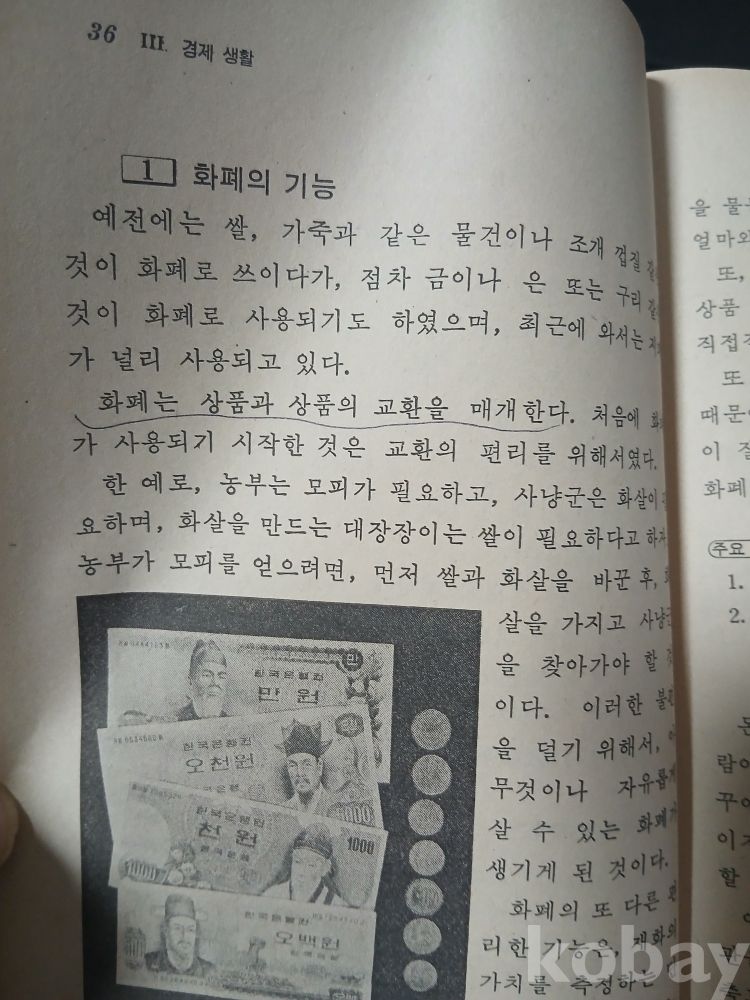 36 III. 경제 생활
1 화폐의 기능
예전에는 쌀, 가죽과 같은 물건이나 조개 껍질
것이 화폐로 쓰이다가, 점차 금이나 은 또는 구리
것이 화폐로 사용되기도 하였으며, 최근에 와서는
가 널리 사용되고 있다.
화폐는 상품과 상품의 교환을 매개한다. 처음에
가 사용되기 시작한 것은 교환의 편리를 위해서였다.
한 예로, 농부는 모피가 필요하고, 사냥군은 화살이
요하며, 화살을 만드는 대장장이는 쌀이 필요하다고 하자.
농부가 모피를 얻으려면, 먼저 쌀과 화살을 바꾼 후,
살을 가지고 사냥군
을 찾아가야 할
이다. 이러한
을 덜기 위해서,
무것이나 자유롭게
살 수 있는 화폐가
생기게 된 것이다.
화폐의 또 다른
리한 기능은 재화의
가치를 측정하는
한국은행권
만 원
만
한국은행권
오천원
한국은행권
천 원
1000
1000
한국은행
한국은행권
오백원
을
얼마와
또,
상품
직접
또
때문
이
화폐
주요
1.
2.
람이
꾸어
할
kobay